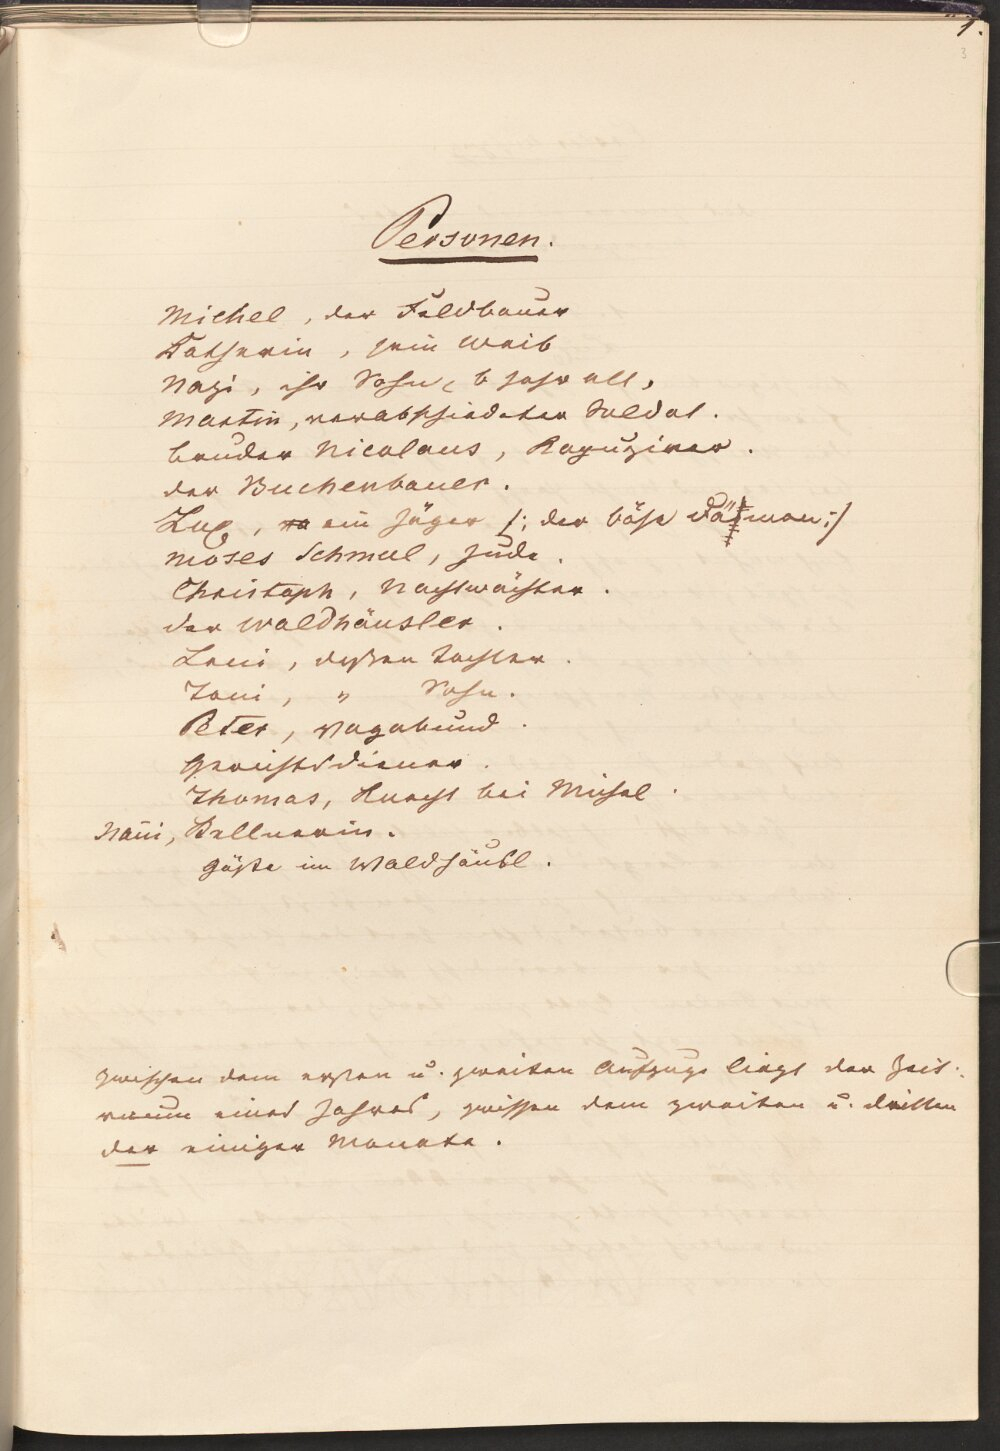 1.
3
Personen.
Michel, der Feldbauer
Katherin, sein Weib
Nazi, ihr Sohn, 6 Jahr alt,
Martin, verabschiedeter Soldat.
Bruder Nicolaus, Kapuziner.
der Buchenbauer.
Lux, ein Jäger /: der böse Dämon :/
Moses Schmul, Jude.
Christoph, Nachtwächter.
der Waldhäusler.
Leni, dessen Tochter.
Toni, " Sohn.
Peter, Vagabund.
Gerichtsdiener.
Thomas, Knecht bei Michel.
Nañi, Kellnerin.
Gäste im Waldhäusl.
Zwischen dem ersten u. zweiten Aufzuge liegt der Zeit-
raum eines Jahres, zwischen dem zweiten u. dritten
der einiger Monate.